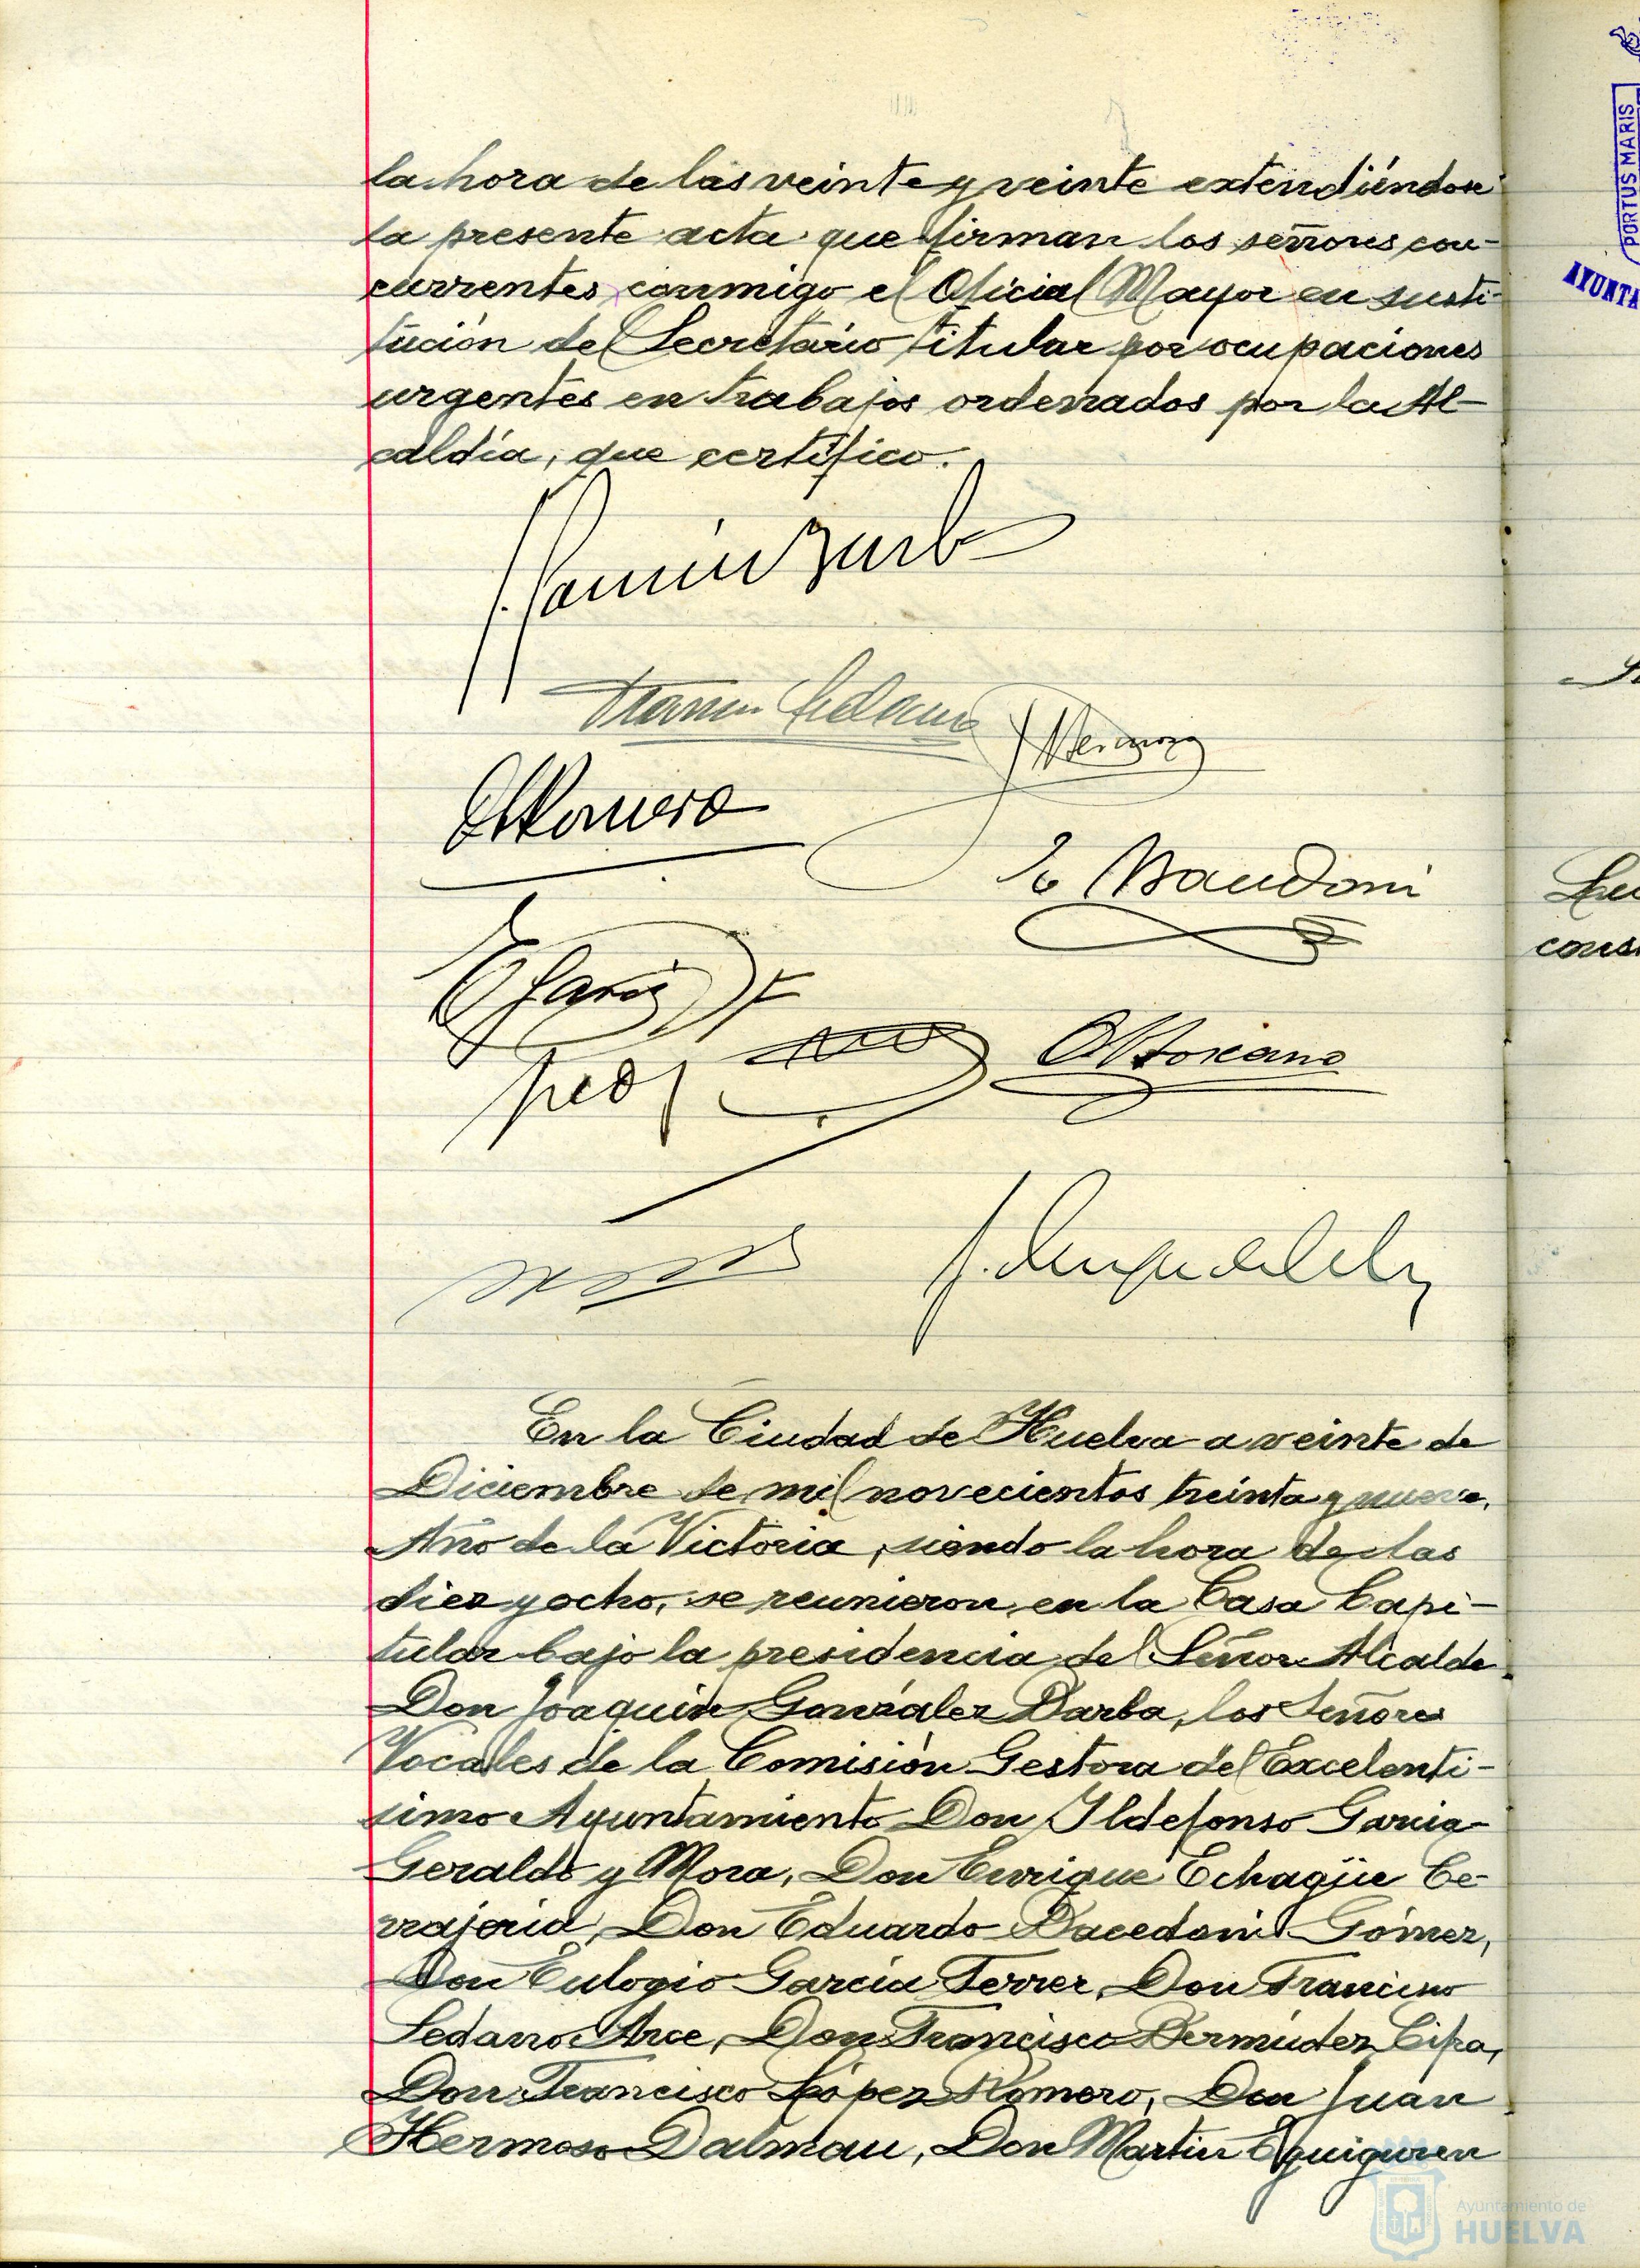 la hora de las veinte y veinte extendiéndose
la presente acta que firman los señores con-
currentes conmigo el Oficial Mayor en susti-
tución del Secretario titular por ocupaciones
urgentes en trabajos ordenados por la Al-
caldía, que certifico.
En la Ciudad de Huelva a veinte de
Diciembre de mil novecientos treinta y nueve,
Año de la Victoria, siendo la hora de las
diez y ocho, se reunieron en la Casa Capi-
tular bajo la presidencia del Señor Alcalde
Don Joaquín González Barba, los Señores
Vocales de la Comisión Gestora del Excelentí-
simo Ayuntamiento Don Ildefonso Garcia
Geraldo y Mora, Don Enrique Echagüe Ce-
rrajería, Don Eduardo Gómez,
Don Eulogio García Ferrer, Don Francisco
Sedano Arce, Don Francisco Bermúdez Cifra,
Don Francisco López Romero, Don Juan
Hermoso Dalmau, Don Martín Eguiguren
PORTUS MARIS
AYUNTA
Ayuntamiento de
HUELVA